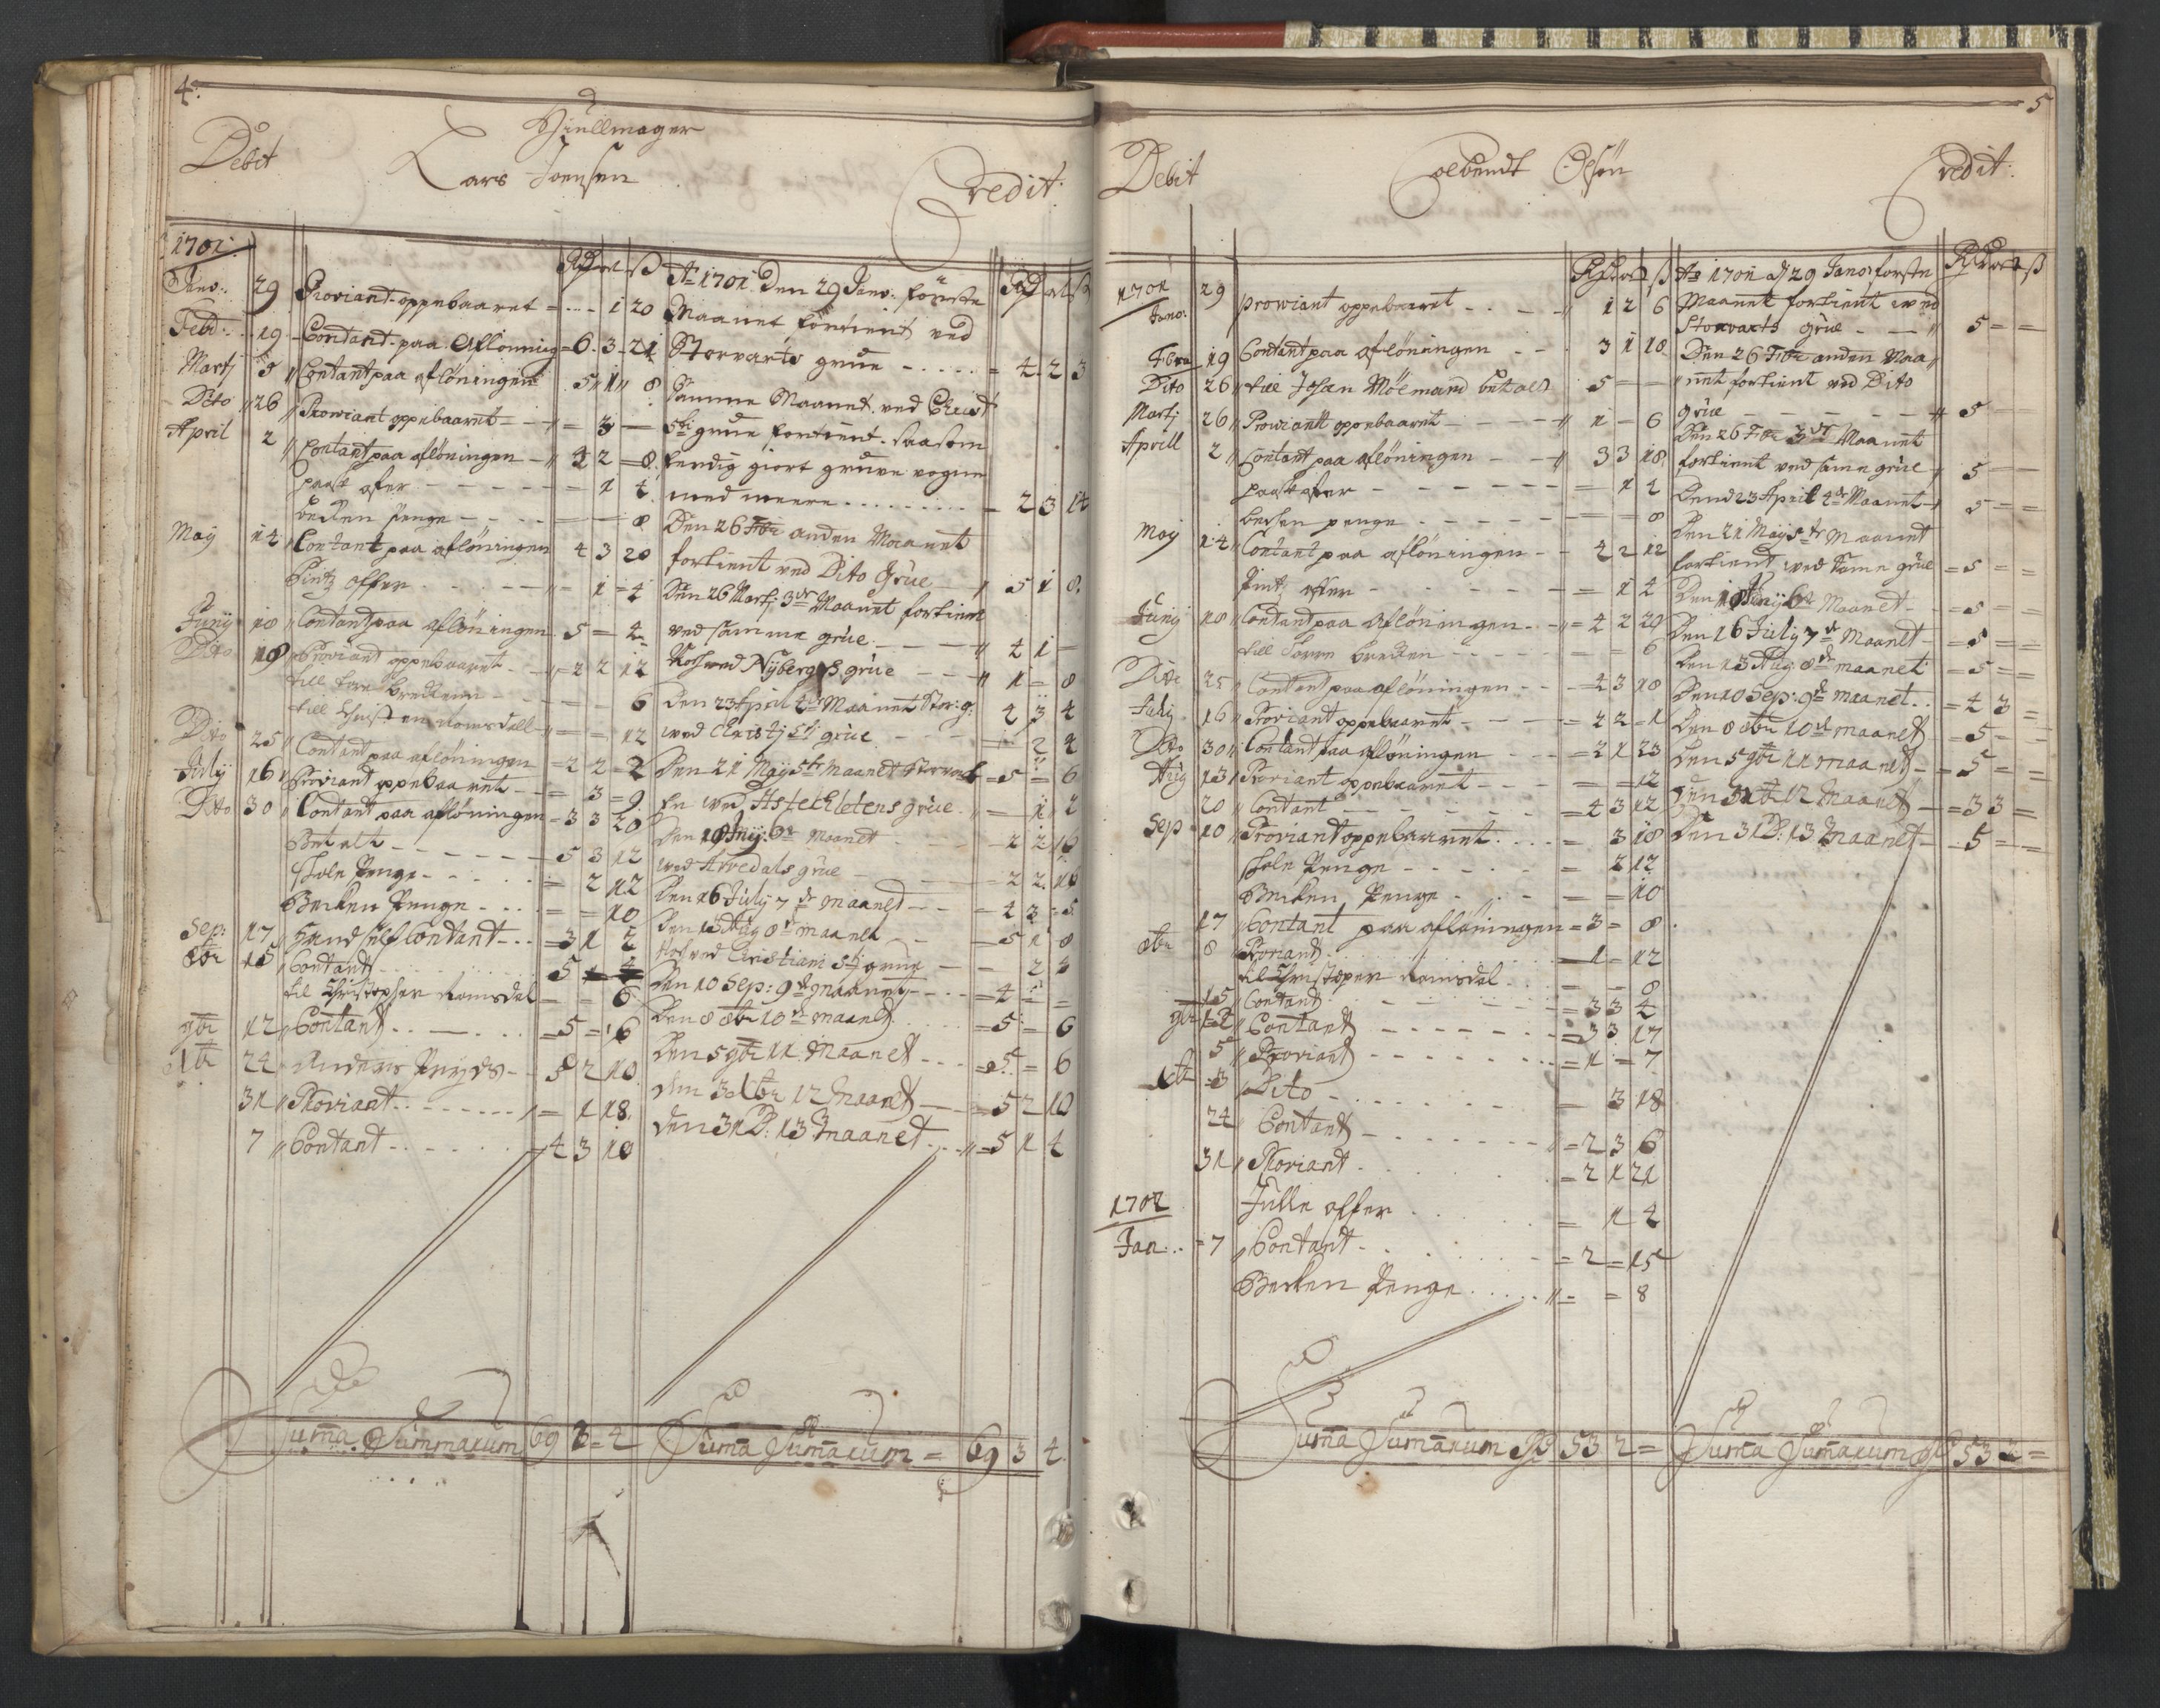 4.
Hiullmager
Debet Lars Joensen Credit:
1701:
Janv: 29 Proviant oppebaaret = - - - 1 20
Febr: 19 Contant paa Aflønning = 6 3 21
Martj 5 Contant paa afløningen 5 1 8
Dito 26 Prowiant oppebaaret - - = 3 —
April 2 Contant paa afløningen - 4 2 = 8
paask ofer - - - - - = 1 4
becken penge - - - - 8
May 14 Contant paa afløningen 4 3 20
Pintz offer - - - - = 1 = 4
Junij 18 Contant paa afløningen 5 = 4
Dito 18 Proviant oppebaaret - = 2 2 12
till Tore - - - - 6
till - - = = 12
Dito 25 Contant paa afløningen = 2 2 = 2
Julij 16 Proviant oppebaaret - = 3 = 9
Dito 30 Contant paa afløningen = 3 3 20
Betalt - - - - - - 5 3 12
skole Penge - - - - - = 2 12
Becken Penge - - - = = 10
Sep: 17 Contant - - = 3 1 2
8br 15 Contant
til Christopher Romsdal = = 6
9br 12 Contant - - - - = 5 = 6
Xbr 24 Anders - - 5 2 10
31 Proviant - - - - - = 1 18
7 Contant - - - - 4 3 10
Suma Summarum 69 3 = 4
Ao 1701 Den 29 Janv: første
Maanet fortient ved
Storvarts grue - - - - - = 4 2 3
Samme Maanet ved Christ
5ti grue fortient saasom
ferdig giort gruve vogne
med meere - - - - - - - = 2 3 14
Den 26 Febr anden Maanet
fortient ved Dito Grue - 5 1 8
Den 26 Martj 3de Maanet fortient
ved samme grue - - - - 4 1 —
Noch ved Nybergs grue - - - 1 = 8
Den 23 April 4de Maanet Stor: g: 4 3 4
ved Christj 5tj grue - - - = 2 4
Den 21 Maij 5te Maanet Storvart = 5 = 6
grue - = 1 2
Den 18 Junij: 6te Maanet - - - 2 2 16
ved Arvedals grue - - - = 2 2 16
Den 16 July 7de Maanet - - = 4 3 = 5
Den 13 Aug 8de Maanet - = 5 1 8
Noch ved Christiani 5tj grue - - 2 4
Den 10 Sep: 9de Maanet - - - = 4 = =
Den 8 8br 10de maanet - - = 5 = 6
Den 5 9br 11 Maanet - - = 5 = 6
den 3 Xbr 12 Maanet - = 5 2 10
den 31 D: 13 Maanet - - = 5 1 4
Suma Sumarum = 69 3 4
5
Debit Olsøn Credit:
1701
Janv: 29 prowiant oppebaaret - - - 1 2 6
Febru 19 Contant paa afløningen - - 3 1 18
Dito 26 till Johan Mölmand betalt 5 = —
Martj 26 Prowiantt oppebaaret - - - 1 - 6
Aprill 2 Contant paa afløningen - - 3 3 18
paask ofer - - - - - - = 1 4
becken penge - - - - - - = = 8
Maij 14 Contant paa afløningen - - 4 2 12
Pintz offer - - - - - - = 1 4
Junij 18 Contant paa afløningen - - = 4 2 20
till - - - - = = 6
Dito 25 Contant paa afløningen - - = 4 3 18
Julij 16 Proviant oppebaaret - - - = 2 2 = 1
Dito 30 Contant paa afløningen - - = 2 1 23
Aug 13 Proviant oppebaaret - - - = = 12
20 Contant - - - - - - = 4 3 12
Sep 10 Proviant oppebaaret - - - - = 3 18
skole Penge - - - - - - = 2 12
Becken Penge - - - = = 10
17 Contant paa afløningen = 3 = 8
8br 8 Proviant - - - - - = 1 = 12
til Christoper Romsdal - - = = 8
15 Contant - - - - - = 3 3 4
9br 12 Contant - - - - - - = 3 3 17
5 Proviant - - - - - - = 1 = 7
Xbr 3 Dito - - - - - - = 3 18
24 Contant - - - - - - = 2 3 6
31 Proviant - - - - = 2 1 21
1702 Julle offer - - - - = 1 4
Jan: 7 Contant - - - - = 2 = 15
Becken Penge - - - - = = 8
Suma Sumarum Rd 53 2 =
Ao 1701 d 29 Janv første
Maanet fortient ved
Storvarts grue - - 5 = =
Den 26 Febr anden Maa
net fortient ved Dito
grue - - - - - - 5 = =
Den 26 3de Maanet
fortient ved same grue 5 = =
Dend 23 April 4de Maanet 5 = =
Den 21 Maij 5te Maanet
fortient ved Same grue = 5 = =
Den 18 Junij 6te Maanet - = 5 = =
Den 16 July 7de Maanet - = 5 = =
Den 13 Aug 8de maanet = 5 = =
Den 10 Sep: 9de maanet - = 4 3 =
Den 8 8br 10de maanet - = 5 = =
Den 5 9br 11 maanet - = 5 = =
Den 3 Xbr 12 Maanet - = 3 3 =
Den 31 D: 13 Maanet - 5 = =
Suma Sumarum Rd 53 2 =